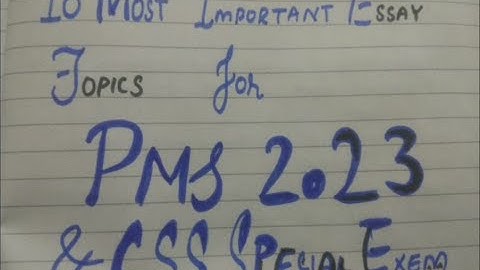 10 MOST IMPORTANT ESSAY
TOPICS FOR
PMS 2023
& CSS SPECIAL EXEAM